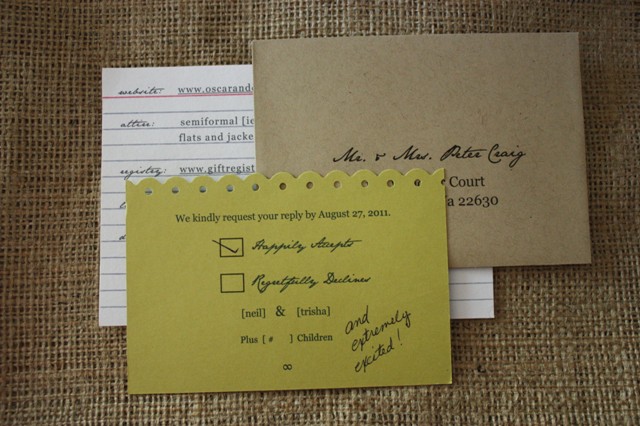 website: www.oscarand
attire: semiformal [ie
flats and jacke
registry: www.giftregist
Mr. & Mrs. Peter Craig
Court
a 22630
We kindly request your reply by August 27, 2011.
Happily Accepts
Regretfully Declines
[neil] & [trisha]
Plus [ # ] Children
∞
and
extremely
excited!